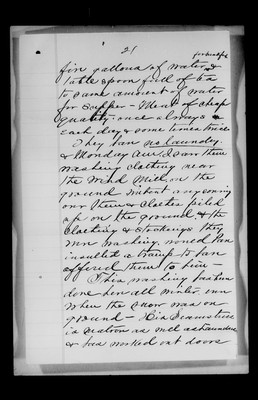 21
for breakfast
five gallons of water &
table spoon full of tea
to same amount of water
for supper - Meat of cheap
quality once always a
Each day & some times twice
They have no laundry
& Monday Aug. I saw them
washing clothing near
the Wind Mill, on the
ground without any
over them & clothes piled
up on the ground & the
clothing & stockings they
were washing, would have
insulted a tramp to have
offered them to him -
This washing has been
done here all winter even
when the snow was on
ground - His Seamstress
is matron as well as
& has worked out doors